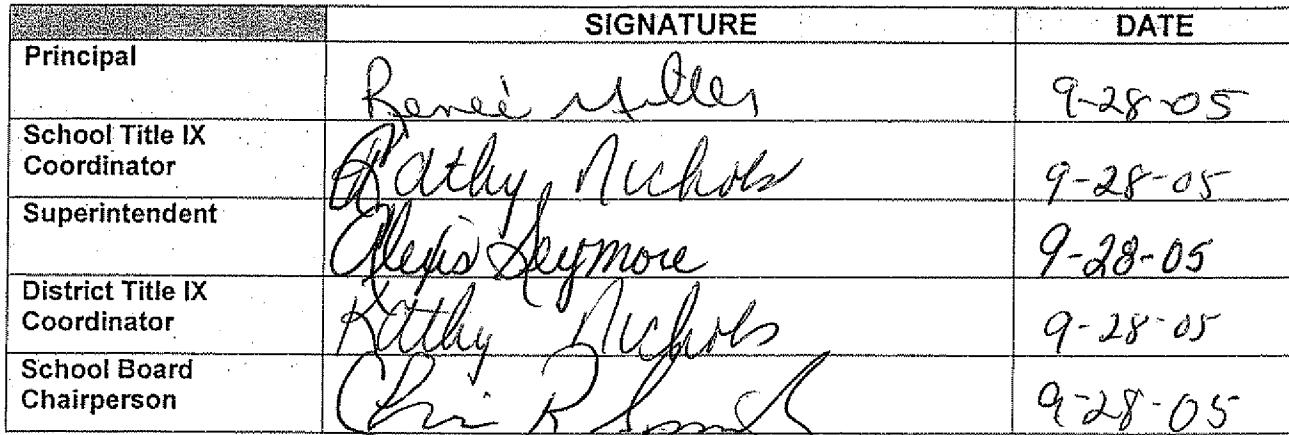 SIGNATURE DATE
Principal Reneé Miller 9-28-05
School Title IX
Coordinator Kathy Nichols 9-28-05
Superintendent Alexis Seymore 9-28-05
District Title IX
Coordinator Kathy Nichols 9-28-05
School Board
Chairperson Chris R Smith 9-28-05